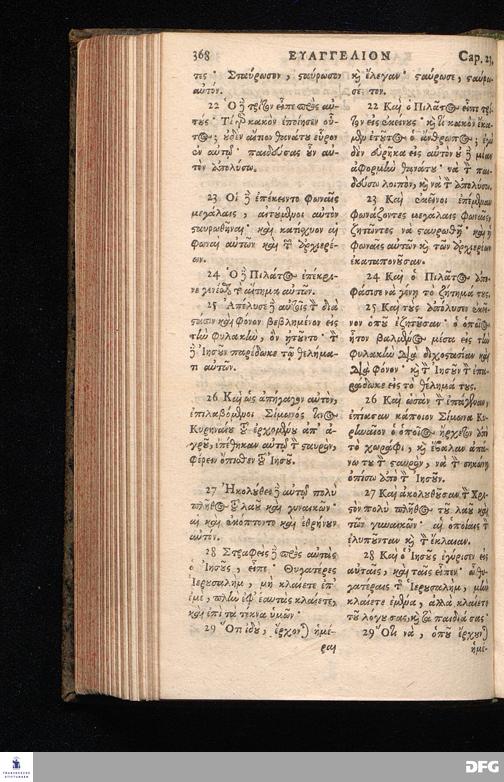 368 ΕΥΑΓΓΕΛΙΟΝ Cap. 23,
τες· Σταύρωσον, ςαύρωσον
αὐτόν.
22 Ὁ ϳ τρίτον εἶπε πρὸς αὐ-
τȣς· Τί γὸ κακὸν ἐποίησεν οὗ-
τος; ȣδὲν αἴτιον θανάτȣ εὗρον
ἐν αὐτῷ· παιδεύσας ȣν αὐ-
τὸν ἀπολύσω.
23 Οἱ ϳ ἐπέκειντο φωναῖς
μεγάλαις, αἰτȣμενοι αὐτὸν
ςαυρωθῆναι· καὶ κατίχυον αἱ
φωναὶ αὐτῶν καὶ τ ἀρχιερέ-
ων.
24 Ὁ ϳ Πιλάτος ἐπέκρι-
νε γενέσθαι τὸ αἴτημα αὐτῶν.
25 Ἀπέλυσε ϳ αὐτοῖς τ διὰ
ςάσιν καὶ φόνον βεβλημένον εἰς
τὴν φυλακὴν, ὃν ᾐτȣντο· τ
ϳ Ἰησȣν παρέδωκε τῷ θελήμα-
τι αὐτῶν.
26 Καὶ ὡς ἀπήγαγον αὐτὸν,
ἐπιλαβόμενοι Σίμωνός τινος
Κυρηναίȣ τȣ ἐρχομένȣ ἀπ' ἀ-
γρȣ, ἐπέθηκαν αὐτῷ τ ςαυρὸν,
φέρειν ὄπιθεν τȣ Ἰησȣ.
27 Ἠκολȣθει ϳ αὐτῷ πολὺ
πλῆθος τȣ λαȣ καὶ γυναικῶν·
αἳ καὶ ἐκόπτοντο καὶ ἐθρήνȣν
αὐτόν.
28 Στραφεὶς ϳ πρὸς αὐτὰς
ὁ Ἰησȣς, εἶπε· Θυγατέρες
Ἱερȣσαλὴμ, μὴ κλαίετε ἐπ'
ἐμὲ, πλὴν ἐφ' ἑαυτὰς κλαίετε,
καὶ ἐπὶ τὰ τέκνα ὑμῶν·
29 Ὅτι ἰδȣ, ἔρχονται ἡμέ-
ραι
κ ἔλεγαν· ςαύρωσε, ςαύρω-
σέ τον.
22 Καὶ ὁ Πιλάτος εἶπε τρί-
τον εἰς ἐκείνȣς· κ τί κακὸν ἔκα-
μεν ἐτȣτος ὁ ἄνθρωπος; ἐγὼ
δὲν εὕρηκα εἰς αὐτὸν ȣ ϳ μίαν
ἀφορμὴν θανάτȣ· νὰ τ παι-
δεύσω λοιπὸν, κ νὰ τ ἀπολύσω.
23 Καὶ ἐκεῖνοι ἐπέμεναν
φωνάζοντες μεγάλαις φωναῖς,
ζητῶντες νὰ ςαυρωθῇ· καὶ ᾑ
φωναῖς αὐτῶν κ τῶν ἀρχιερέων
ἐκαταπονȣσαν.
24 Καὶ ὁ Πιλάτος ἀπε-
φάσισε νὰ γένῃ τὸ ζήτημά τȣς.
25 Καὶ τȣς ἀπόλυσεν ἐκεῖ-
νον ὁπȣ ἐζητȣσαν· ὁ ὁποῖος
ἦτον βαλμένος μέσα εἰς τὴν
φυλακὴν διὰ διχοςασίαν καὶ
διὰ φόνον· κ τ Ἰησȣν τ ἐπα-
ράδωκε εἰς τὸ θέλημά τȣς.
26 Καὶ ὡσὰν τ ἐπάγαιναν,
ἐπίασαν κάποιον Σίμωνα Κυ-
ρηναῖον ὁ ὁποῖος ἤρχετον ἀπὸ
τὸ χωράφι, κ ἔβαλαν ἀπά-
νω τȣ τ ςαυρὸν, νὰ τ σηκώνῃ
ὀπίσω ἀπὸ τ Ἰησȣν.
27 Καὶ ἀκολȣθȣσαν τ Χρι-
ςὸν πολὺ πλῆθος τȣ λαȣ καὶ
τῶν γυναικῶν· αἱ ὁποῖαις τ
ἐλυπȣνταν κ τ ἔκλαιαν.
28 Καὶ ὁ Ἰησȣς ἐγύρισεν εἰς
αὐταῖς, καὶ ταῖς εἶπεν· ὦ θυ-
γατέραις τ Ἱερȣσαλὴμ, μὴν
κλαίετε ἐμένα, ἀλλὰ κλαίετε
τȣ λόγȣ σας, κ τὰ παιδιά σας·
29 Ὅτι νὰ, ὁπȣ ἔρχονται
ἡμέ-
FRANCKESCHE
STIFTUNGEN
DFG